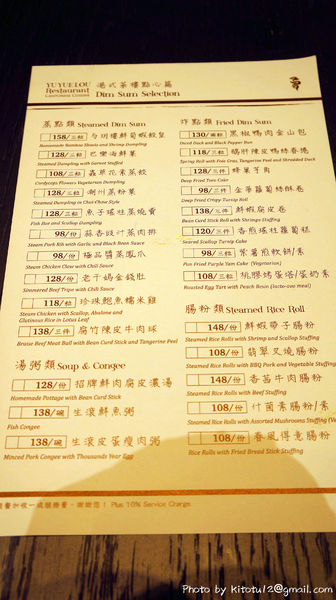 YUYUELOU
Restaurant
Cantonese Cuisine
港式茶樓點心篇
Dim Sum Selection
蒸點類 Steamed Dim Sum
158/三粒
Homemade Bamboo Shoots and Shrimp Dumpling
128/三粒
Steamed Dumpling with Garnet Stuffed
108/三粒 蟲草花素蒸餃
Cordyceps Flowers Vegetarian Dumpling
98/三粒 潮州蒸粉菓
Steamed Dumpling in Chui-Chow Style
128/三粒 魚子瑤柱蒸燒賣
Fish Roe and Scallop Dumpling
98/份 蒜香豉汁蒸肉排
Steam Pork Rib with Garlic and Black Bean Sauce
98/份 極品醬蒸鳳爪
Steam Chicken Claw with Chili Sauce
128/份 老干媽金錢肚
Simmered Beef Tripe with Chili Sauce
118/粒 珍珠鮑魚糯米雞
Steam Chicken with Scallop, Abalone and
Glutinous Rice in Lotus Leaf
138/三件 腐竹陳皮牛肉球
Braise Beef Meat Ball with Bean Curd Stick and Tangerine Peel
湯粥類 Soup & Congee
128/份 招牌鮮肉腐皮濃湯
Homemade Pottage with Bean Curd Stick
138/碗 生滾鮮魚粥
Fish Congee
138/碗 生滾皮蛋瘦肉粥
Minced Pork Congee with Thousands Year Egg
炸點類 Fried Dim Sum
130/兩粒 黑椒鴨肉金山包
Diced Duck and Black Pepper Bun
118/三粒 鵝肝陳皮鴨絲春捲
Spring Roll with Foie Gras, Tangerine Peel and Shredded Duck
128/三件 蜂巢芋角
Deep Fried Taro Cake
98/三件 金華蘿蔔絲酥卷
Deep Fried Crispy Turnip Roll
138/三件 鮮蝦腐皮卷
Bean Curd Stick Roll with Shrimps Stuffing
120/三件 香煎瑤柱蘿蔔糕
Seared Scallop Turnip Cake
98/三件 紫薯煎軟餅/素
Pan Fried Purple Yam Cake (Vegetarian)
108/三粒 桃膠燉蛋塔/蛋奶素
Roasted Egg Tart with Peach Resin (lacto-ovo meal)
腸粉類 Steamed Rice Roll
148/份 鮮蝦帶子腸粉
Steamed Rice Rolls with Shrimp and Scallop Stuffing
108/份 翡翠叉燒腸粉
Steamed Rice Rolls with BBQ Pork and Vegetable Stuffing
148/份 香茜牛肉腸粉
Steamed Rice Rolls with Beef Stuffing
108/份 什菌素腸粉/素
Steamed Rice Rolls with Assorted Mushrooms Stuffing (Ve
108/份 春風得意腸粉
Rice Rolls with Fried Bread Stick Stuffing
餐加收一成服務費，謝謝您！ Plus 10% Service Charge.
Photo by kitotu12@gmail.com